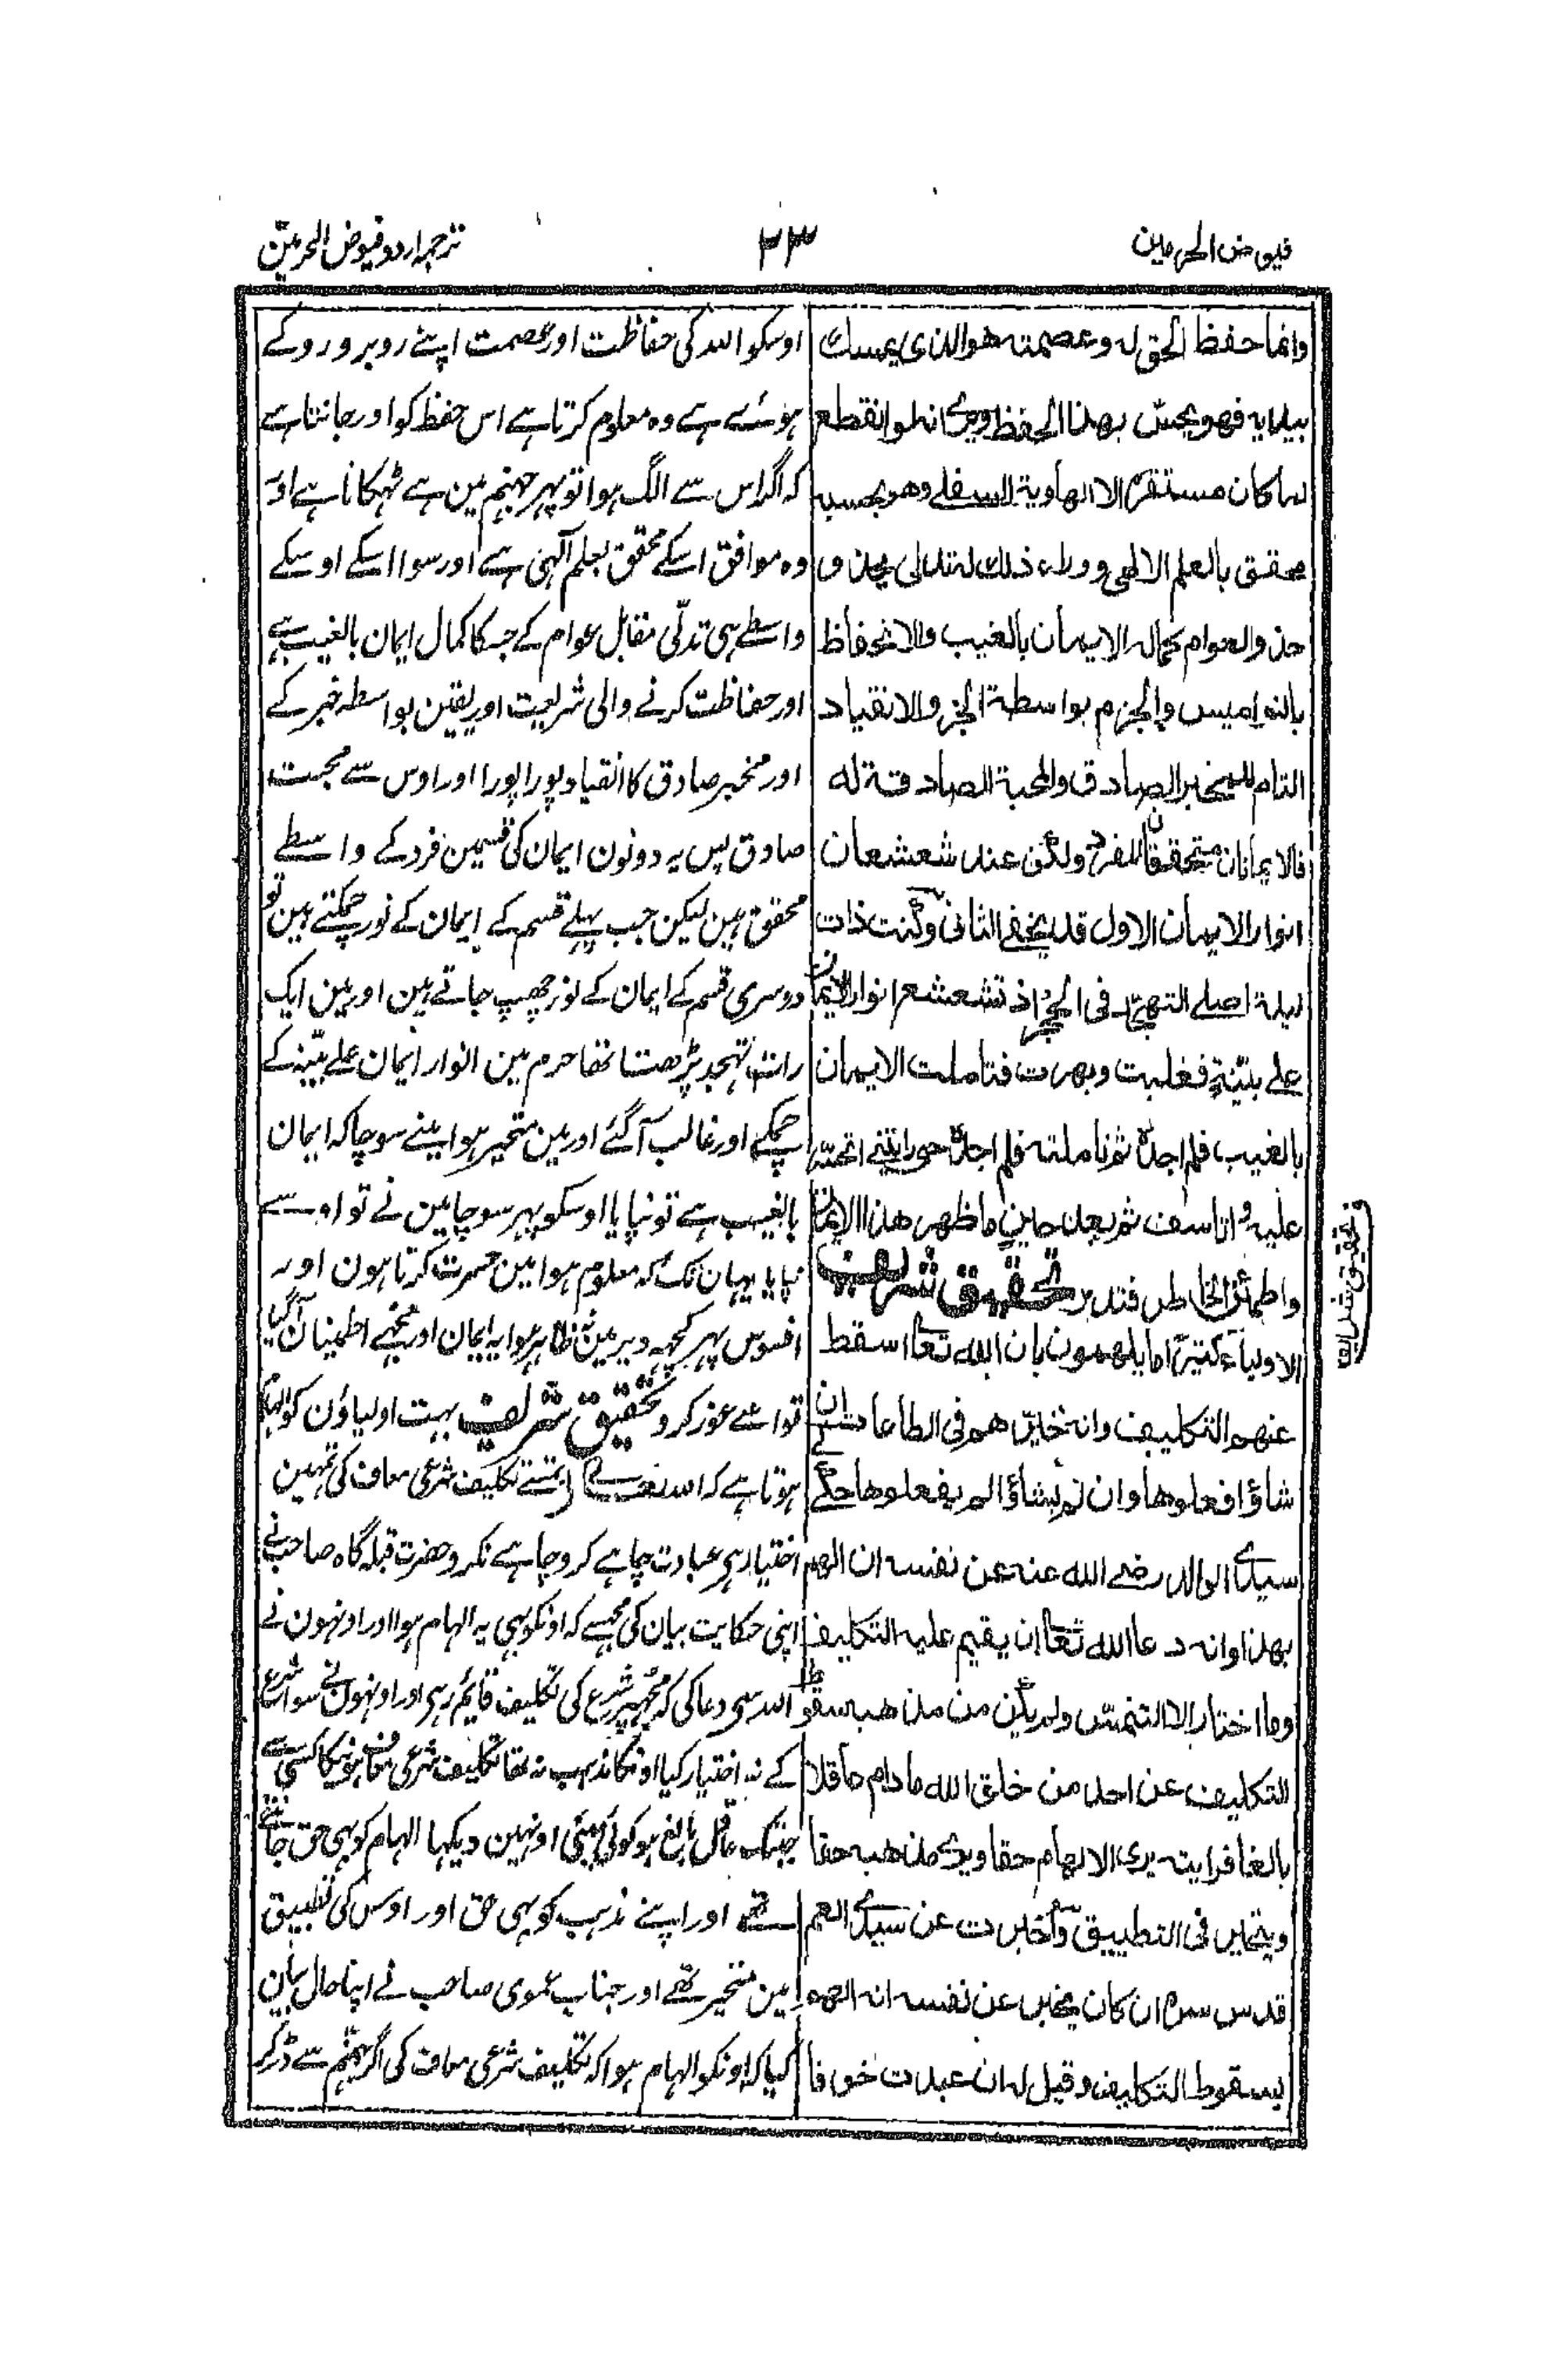 فیوض الحرمین
۲۳
ترجمہ اردو فیوض الحرمین
وانما حفظ الحق له وعصمته هو الذی یمسك
بیدیه فهو یحسّ بهذا الحفظ ویری انه لو انقطع
لما كان مستقره الا الهاویة السفلے وهو بحسبه
محقق بالعلم الالهی ووراء ذلك له تدلی یحذو
حذو العوام كماله الایمان بالغیب والانحفاظ
بالنوامیس والجزم بواسطة الخبر والانقیاد
التام للمخبر الصادق والمحبة الصادقة له
فالایمانان متحققان للفرد ولكن عند شعشعان
انوار الایمان الاول قد یختفی الثانی وكنت ذات
لیلة اصلے التهجد فی الحجر اذ تشعشع انوار الایمان
علے بیّنةٍ فغلبت وبهرت فتاملت الایمان
بالغیب فلم اجده ثم تاملته فلم اجده حتی رایتنی اتحسّر
علیه واتاسف ثم بعد حین ما ظهر هذا الایمان
واطمأن الخاطر فتدبر تحقیق شریف
الاولیاء كثیرًا ما یلهمون بان الله تعا اسقط
عنهم التكلیف وانه خیّرهم فی الطاعات ان
شاؤا فعلوها وان لم یشاؤا لم یفعلوها حكے
سیدی الوالد رضے الله عنه عن نفسه ان الهم
بهذا وانه دعا الله تعا ان یقیم علیه التكلیف
وما اختار الا التنمس ولم یكن من مذهبه سقوط
التكلیف عن احد من خلق الله ما دام عاقلا
بالغا فرایته یری الالهام حقا ویری مذهبه حقا
ویتحیر فی التطبیق وأخبرت عن سیدی العم
قدس سره ان كان یخبر عن نفسه انه الهم
بسقوط التكلیف وقیل له ان عبدت خوفا
اوسکو اللہ کی حفاظت اور عصمت اپنے روبرو روکے
ہوئے ہے وہ معلوم کرتا ہے اس حفظ کو اور جانتا ہے
کہ اگر اس سے الگ ہوا تو پہر جہنم مین ہے ٹہکانا ہے اور
وہ موافق اسکے محقق بعلم آلہی ہے اور سوا اسکے اوسکے
واسطے ہی تدلّی مقابل عوام کے جسکا کمال ایمان بالغیب ہے
اور حفاظت کرنے والی شریعت اور یقین بواسطہ خبر کے
اور مخبر صادق کا انقیاد پورا پورا اور اوس سے محبت
صادق پس یہ دونون ایمان کی قسمین فرد کے واسطے
محقق ہین لیکن جب پہلے قسم کے ایمان کے نور چمکتے ہین تو
دوسری قسم کے ایمان کے نور چھپ جاتے ہین اور مین ایک
رات تہجد پڑھتا تھا حرم مین انوار ایمان علے بیّنہ کے
چمکے اور غالب آگئے اور مین متحیر ہوا مینے سوچا کہ ایمان
بالغیب ہے تو نپایا اوسکو پہر سوچا مین نے تو اوسے
نپایا یہان تک کہ معلوم ہوا مین حسرت کرتا ہون اور
افسوس پہر کچہہ دیر مین ظاہر ہوا یہ ایمان اور مجھے اطمینان آگیا
تو اسے غور کرو تحقیق شریف بہت اولیاؤن کو الہام
ہوتا ہے کہ اللہ تعالے نے تمسے تکلیف شرعی معاف کی تمہین
اختیار ہی عبادت چاہے کرو چاہے نکرو حضرت قبلہ گاہ صاحب نے
اپنی حکایت بیان کی مجہسے کہ اونکو بہی یہ الہام ہوا اور اونہون نے
اللہ سے دعا کی کہ مجہپر شرع کی تکلیف قایم رہی اور اونہون نے سوا شرع
کے نہ اختیار کیا اونکا مذہب نہ تھا تکلیف شرعی معاف ہونیکا کسی سے
جبتک عاقل بالغ ہو کوئی مینے اونہین دیکہا الہام کو بہی حق جانتے
تھے اور اپنے مذہب کو بہی حق اور اوس کی تطبیق
مین متحیر تھے اور جناب عموی صاحب نے اپنا حال بیان
کیا کہ اونکو الہام ہوا کہ تکلیف شرعی معاف کی اگر جہنم سے ڈر کر
تحقیق شریف